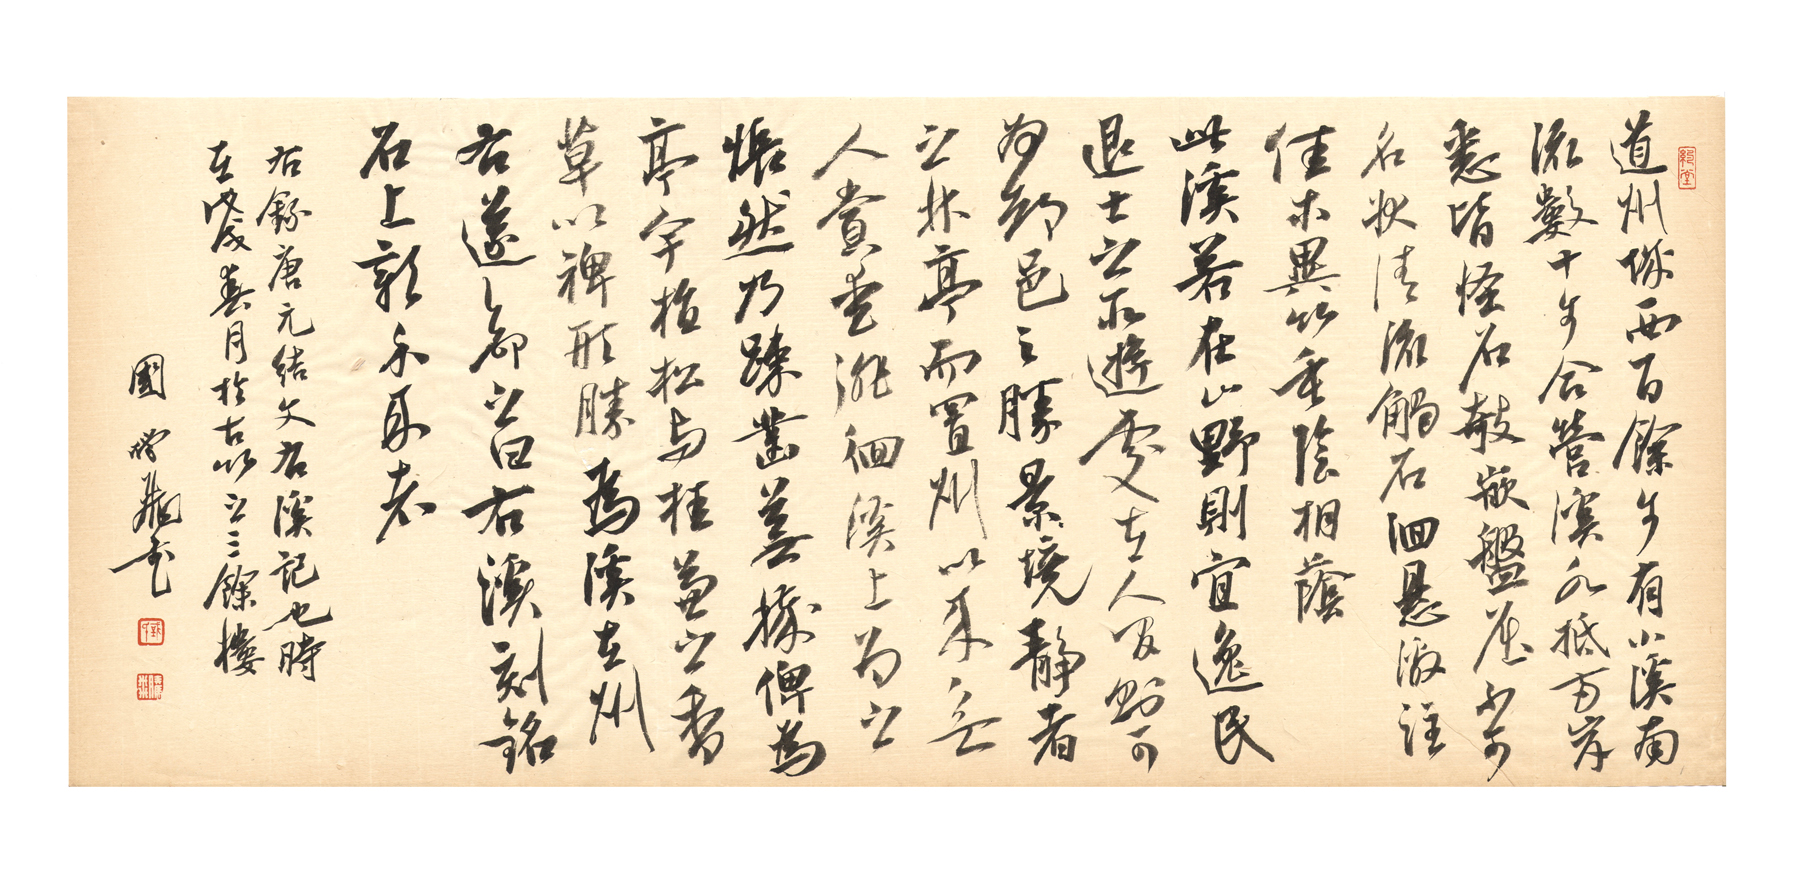 道州城西百餘步有小溪南
流數十步合營溪水抵兩岸
悉皆怪石欹嵌盤屈不可
名狀清流觸石洄懸激注
佳木異竹垂陰相蔭
此溪若在山野則宜逸民
退士之所遊處在人間則可
為都邑之勝景境靜者
之林亭而置州以來無
人賞愛徘徊溪上為之
悵然乃疎鑿蕪穢俾為
亭宇植松與桂兼之香
草以裨形勝為溪在州
右遂命之曰右溪刻銘
石上彰示來者
右錄唐元結文右溪記也時
在戊戌春月於古竹之三餘樓
國